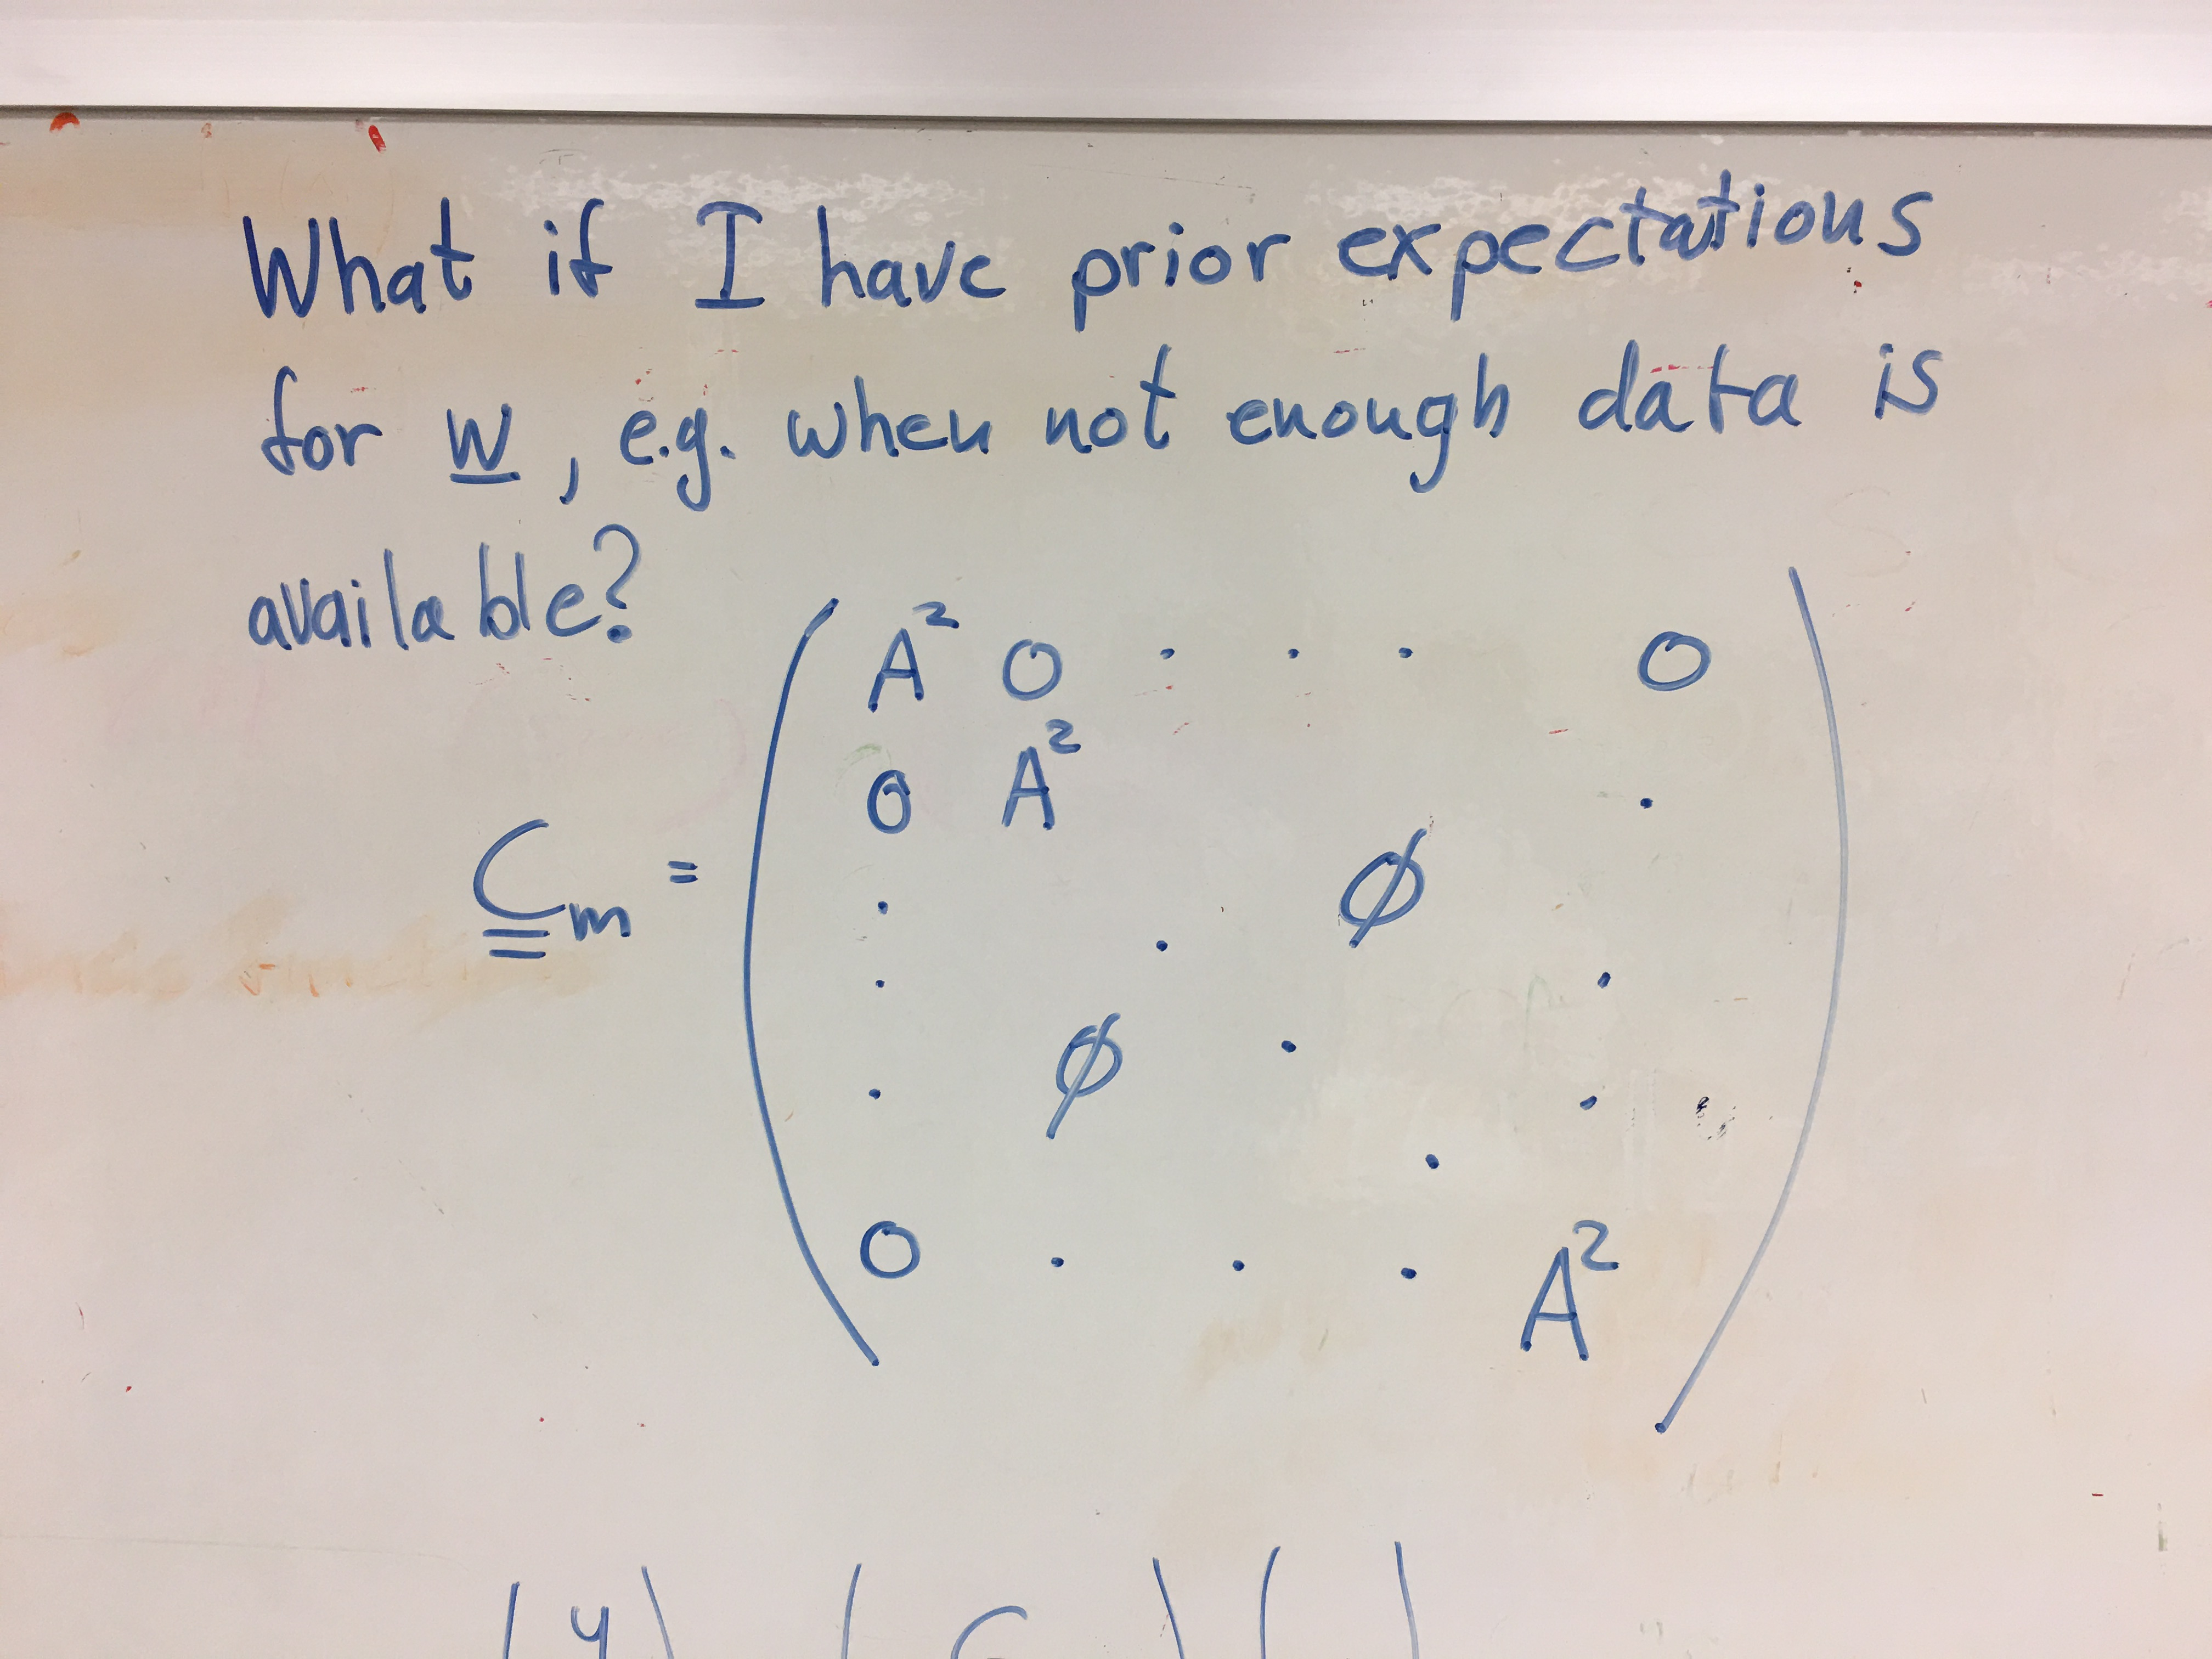 What if I have prior expectations
for w, e.g. when not enough data is
available?
A² 0 . . . 0
0 A² .
C_m = . . ∅
. .
. ∅ . .
.
0 . . . A²
y